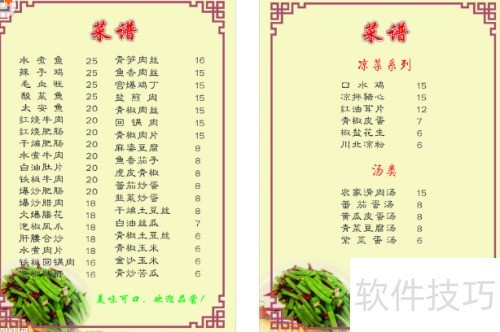 菜谱
水煮鱼 25
辣子鸡 25
毛血旺 25
酸菜鱼 25
太安鱼 20
红烧牛肉 20
红烧肥肠 20
干煸肥肠 20
水煮牛肉 20
白油肚片 20
铁板牛肉 20
爆炒肥肠 20
爆炒腊肉 18
火爆腰花 18
泡椒凤爪 18
肝腰合炒 18
水煮肉片 18
铁板回锅肉 16
16
青笋肉丝 16
鱼香肉丝 15
宫爆鸡丁 15
盐煎肉 15
青椒肉丝 15
回锅肉 15
青椒肉片 15
麻婆豆腐 8
鱼香茄子 8
虎皮青椒 8
蕃茄炒蛋 8
韭菜炒蛋 8
干煸土豆丝 8
白油丝瓜 7
青椒土豆丝 6
青椒玉米 6
金沙玉米 6
青炒苦瓜 6
美味可口，欢迎品尝！
菜谱
凉菜系列
口水鸡 15
凉拌猪心 15
红油耳片 12
青椒皮蛋 7
椒盐花生 6
川北凉粉 6
汤类
农家滑肉汤 15
番茄蛋汤 8
黄瓜皮蛋汤 8
青菜豆腐汤 8
紫菜蛋汤 6
软件技巧